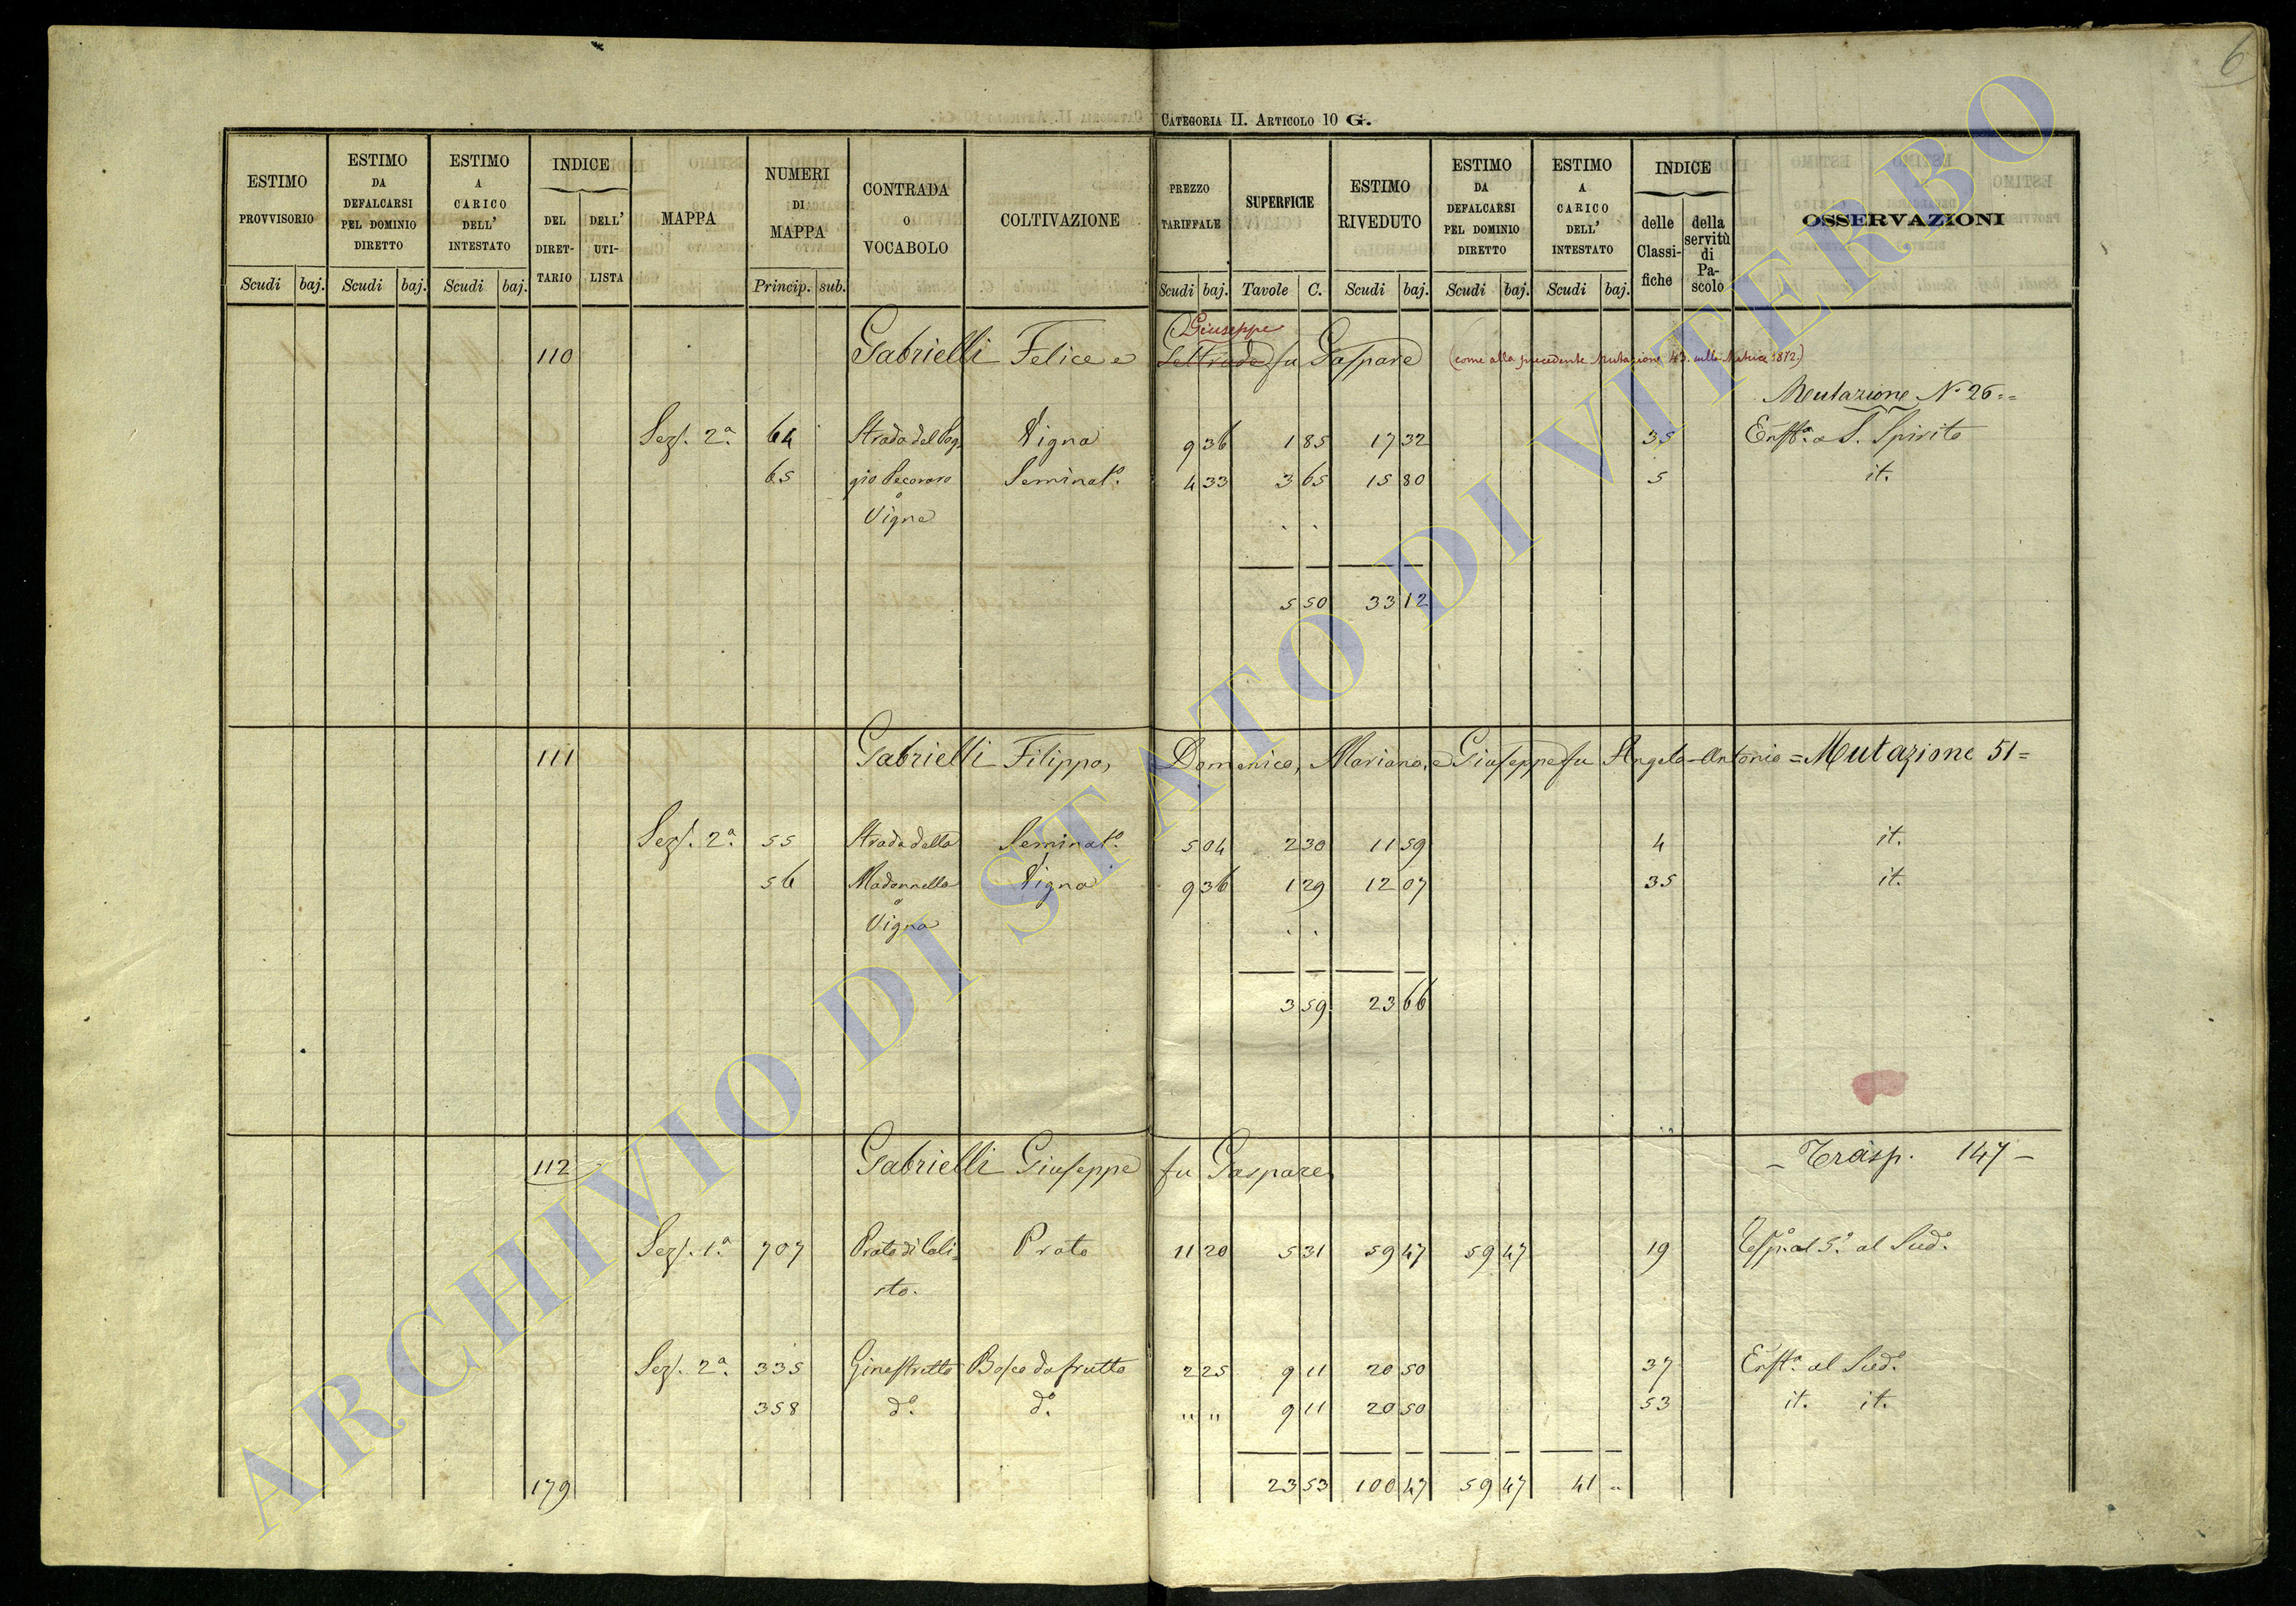 6
CATEGORIA II. ARTICOLO 10 G.
ESTIMO PROVVISORIO Scudi baj.
ESTIMO DA DEFALCARSI PEL DOMINIO DIRETTO Scudi baj.
ESTIMO A CARICO DELL' INTESTATO Scudi baj.
INDICE DEL DIRET-TARIO DELL' UTI-LISTA
MAPPA
NUMERI DI MAPPA Princip. sub.
CONTRADA O VOCABOLO
COLTIVAZIONE
PREZZO TARIFFALE Scudi baj.
SUPERFICIE Tavole C.
ESTIMO RIVEDUTO Scudi baj.
ESTIMO DA DEFALCARSI PEL DOMINIO DIRETTO Scudi baj.
ESTIMO A CARICO DELL' INTESTATO Scudi baj.
INDICE delle Classi-fiche della servitù di Pa-scolo
OSSERVAZIONI
Giuseppe
110 Gabrielli Felice e fu Gaspare (come alla precedente Mutazione 43. sulla Matrice 1872.)
Mutazione N.º 26=
Sez. 2ª 64 Strada del Pog= Vigna 9 36 1 85 17 32 35 Enft.ª a S. Spirito
65 gio Pecoraro Seminat.º 4 33 3 65 15 80 5 it.
o
Vigna
5 50 33 12
111 Gabrielli Filippo, Domenico, Mariano, e Giuseppe fu Angelo-Antonio = Mutazione 51=
Sez. 2ª 55 Strada della Seminat.º 5 04 2 30 11 59 4 it.
56 Madonnella Vigna 9 36 1 29 12 07 35 it.
o
Vigna
3 59 23 66
112 Gabrielli Giuseppe fu Gaspare – Trasp. 147 –
Sez. 1ª 707 Prato di Cali= Prato 11 20 5 31 59 47 59 47 19 al Sud.º
sto.
Sez. 2ª 335 Ginestretto Bosco da frutto 2 25 9 11 20 50 37 Enft.ª al Sud.º
358 d.º d.º " " 9 11 20 50 53 it. it.
179 23 53 100 47 59 47 41 "
ARCHIVIO DI STATO DI VITERBO